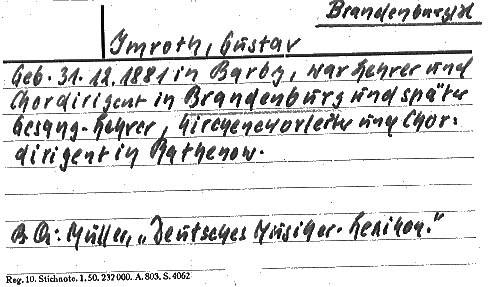 Brandenburg/H
Imroth, Gustav
Geb. 31.12.1881 in Barby, war Lehrer und
Chordirigent in Brandenburg und später
Gesang-Lehrer, Kirchenchorleiter und Chor-
dirigent in Rathenow.
B.Qu: Müller, „Deutsches Musiker-Lexikon."
Reg. 10. Stichnote. 1. 50. 232 000. A. 803. S. 4062